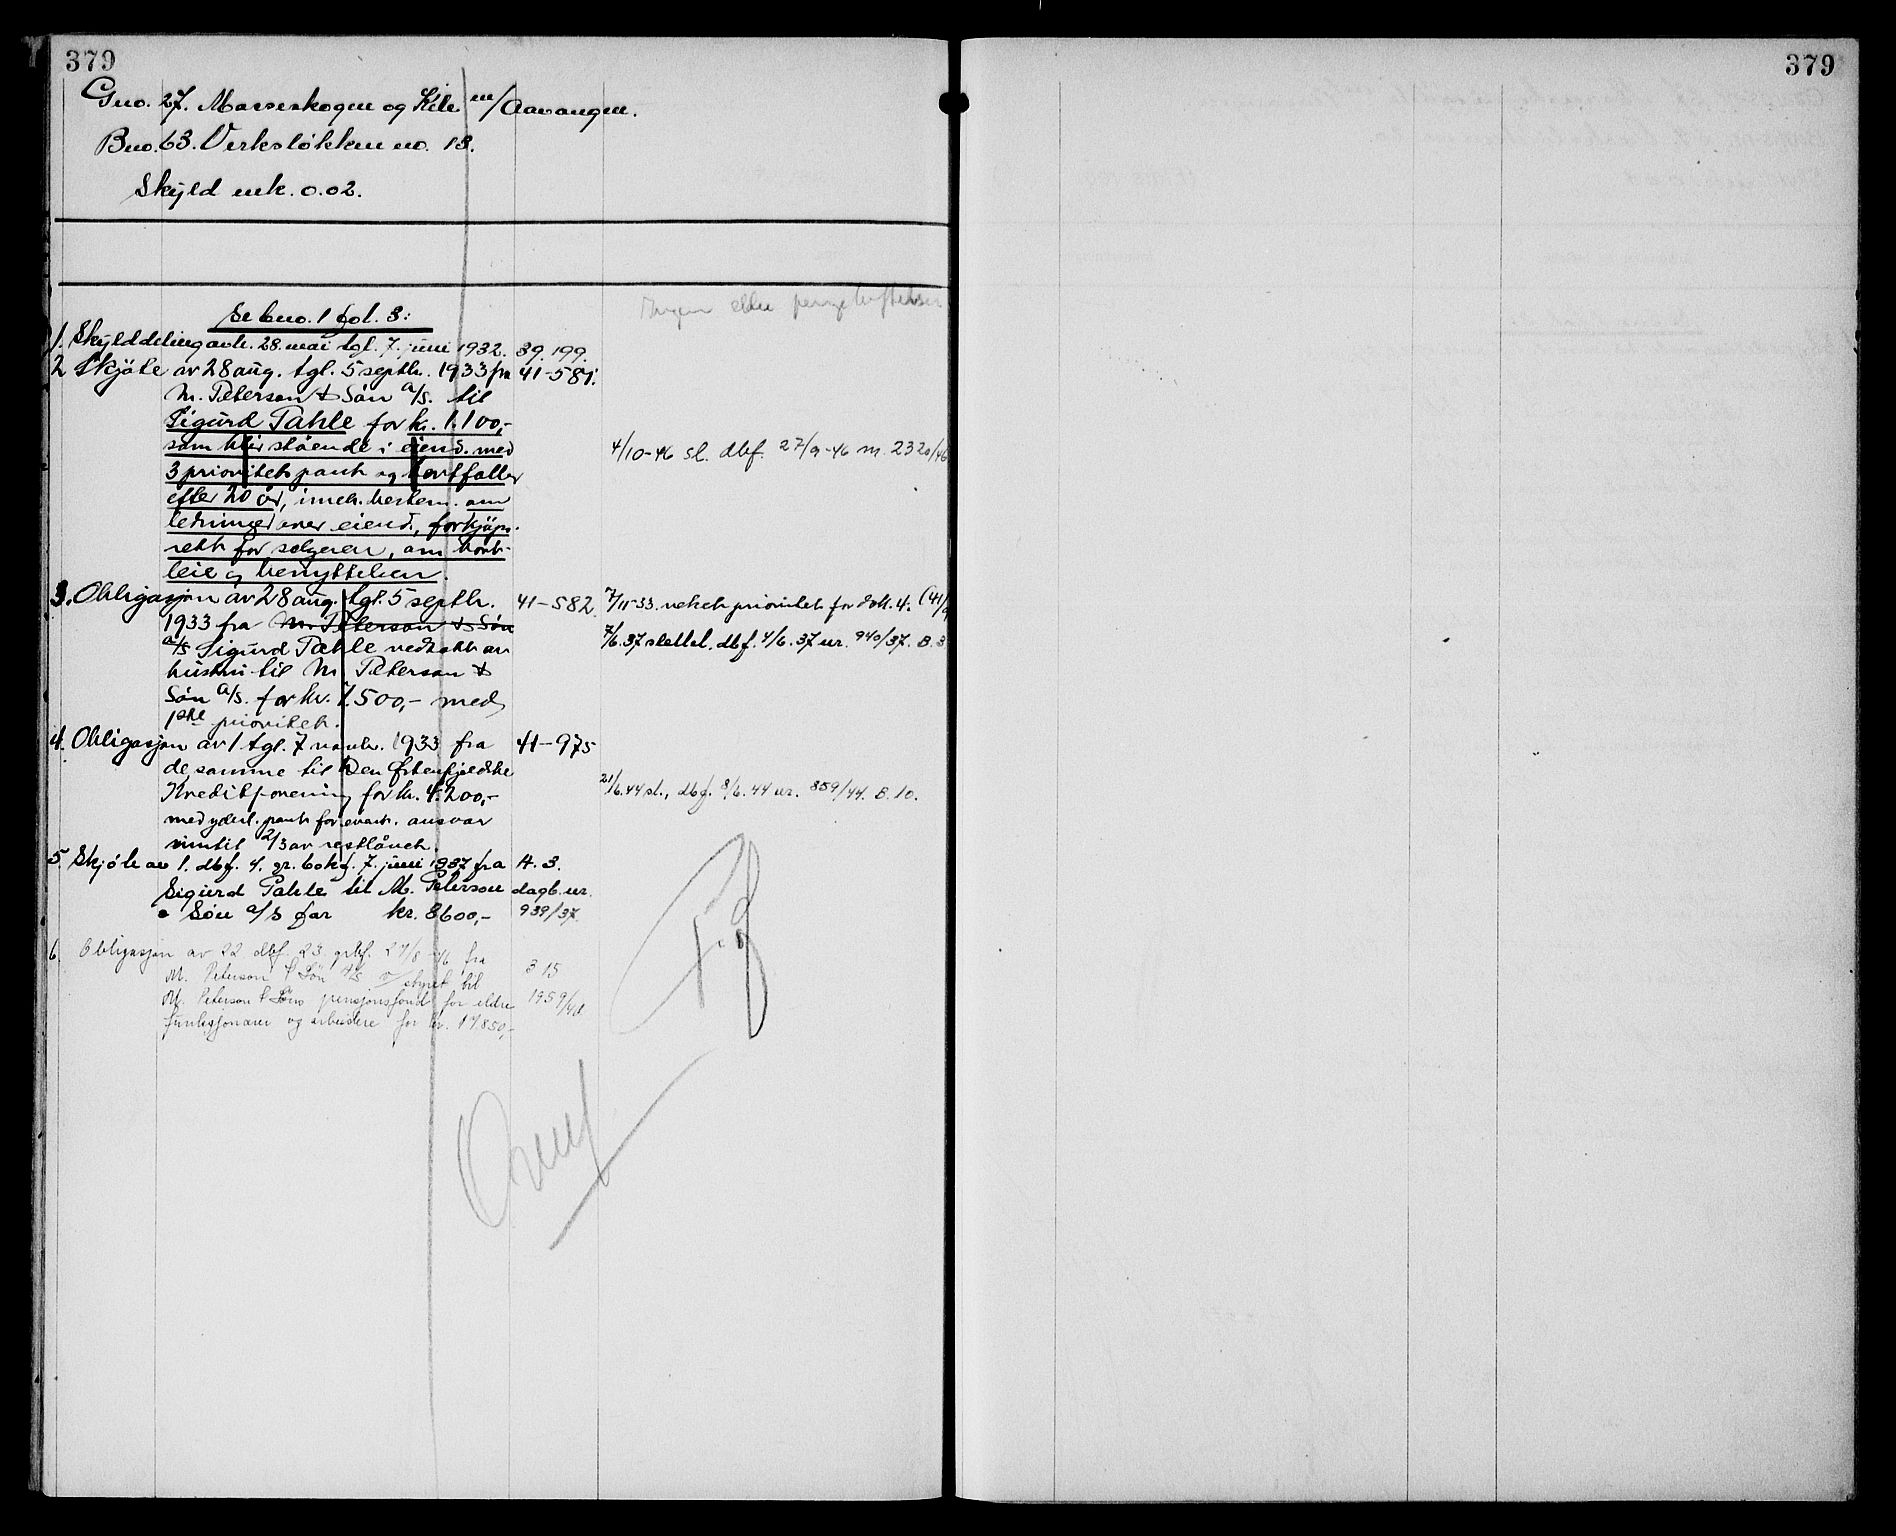 379
379
Gno. 27. Masseskogen og Kile m/Aavangen.
Bno. 63. Verksløkken no. 13.
Skyld mk. 0.02.
eldre pengeheftelser
Se bno. 1 fol. 3:
1. Skylddeling avh. 28. mai tgl. 7. juni 1932. 39. 199.
2 Skjøte av 28 aug. tgl. 5 septbr. 1933 fra 41-581.
M. Peterson & Søn a/s. til
Sigurd Pahle for kr. 1.100,-
som blir stående i eiend. med
4/10-46 sl. dbf. 27/9-46 nr. 2320/46
3 prioritets pant og bortfaller
efter 20 år, inneh. bestem. om
ledninger over eiend., forkjøps-
rett for selgeren, om bort-
leie og benyttelsen.
3. Obligasjon av 28 aug. tgl. 5 septbr. 41-582 7/11-33. veket prioritet for dok. 4. (41/
1933 fra M. Peterson & Søn
a/s Sigurd Pahle vedtatt av 7/6.37 slettet. dbf. 4/6.37 nr. 940/37. B. 3
hustru til M. Peterson &
Søn a/s. for kr. 7.500,- med
1ste prioritet.
4. Obligasjon av 1 tgl. 7 novbr. 1933 fra 41-975
de samme til Den Østenfjeldske
Kreditforening for kr. 4.200,- 21/6.44 sl., dbf. 8/6.44 nr. 859/44. B. 10.
med yderl. pant for event. ansvar
inntil 2/3 av restlånet.
5 Skjøte av 1. dbf. 4. gr. bokf. 7. juni 1937 fra A. 3.
Sigurd Pahle til M. Peterson dagb. nr.
& Søn a/s for kr. 8600,- 939/37.
6. Obligasjon av 22 dbf. 23. grbf. 27/8-46 fra
M. Peterson & Søn A/S v/styret til 3 15
M. Peterson & Søns pensjonsfond for eldre 1959/46
funksjonærer og arbeidere for kr. 17850,-